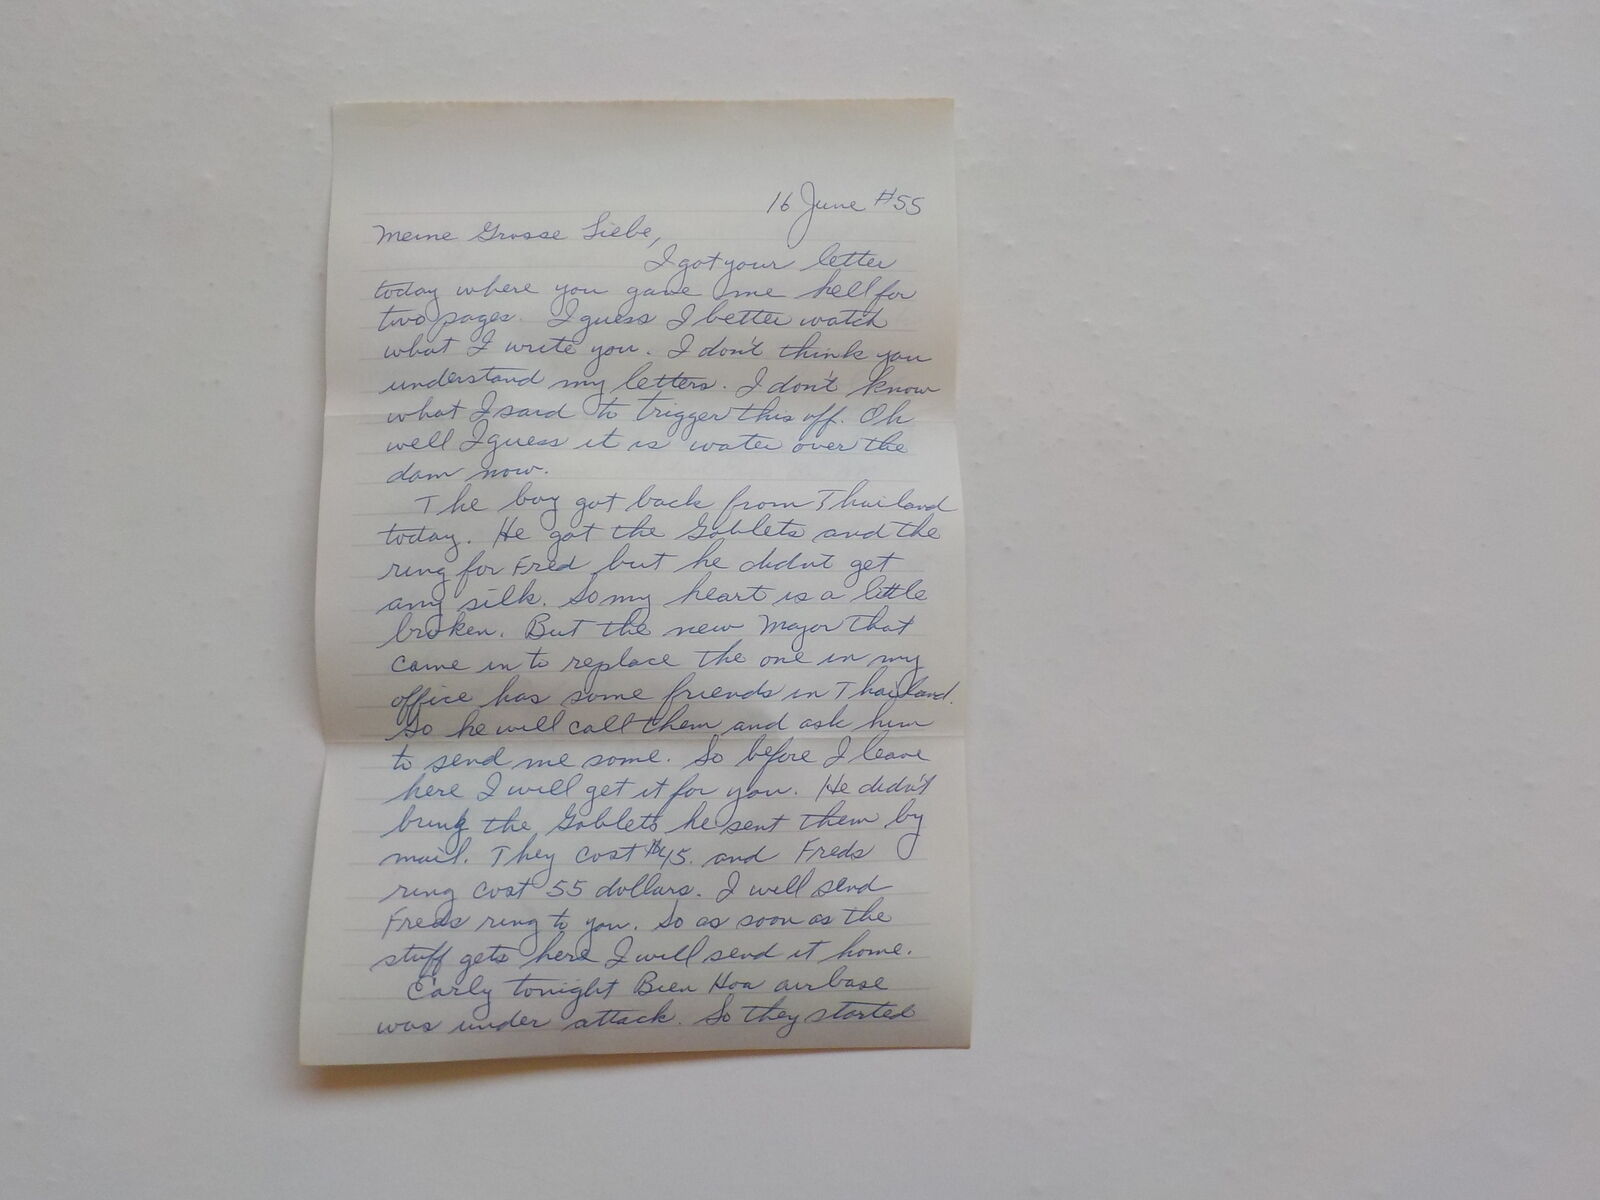 16 June #55
Meine Grosse Liebe,
I got your letter
today where you gave me hell for
two pages. I guess I better watch
what I write you. I don't think you
understand my letters. I don't know
what I said to trigger this off. Oh
well I guess it is water over the
dam now.
The boy got back from Thailand
today. He got the Goblets and the
ring for Fred but he didn't get
any silk. So my heart is a little
broken. But the new Major that
came in to replace the one in my
office has some friends in Thailand.
So he will call them and ask him
to send me some. So before I leave
here I will get it for you. He didn't
bring the Goblets he sent them by
mail. They cost $45. and Freds
ring cost 55 dollars. I will send
Freds ring to you. So as soon as the
stuff gets here I will send it home.
Early tonight Bien Hoa airbase
was under attack. So they started